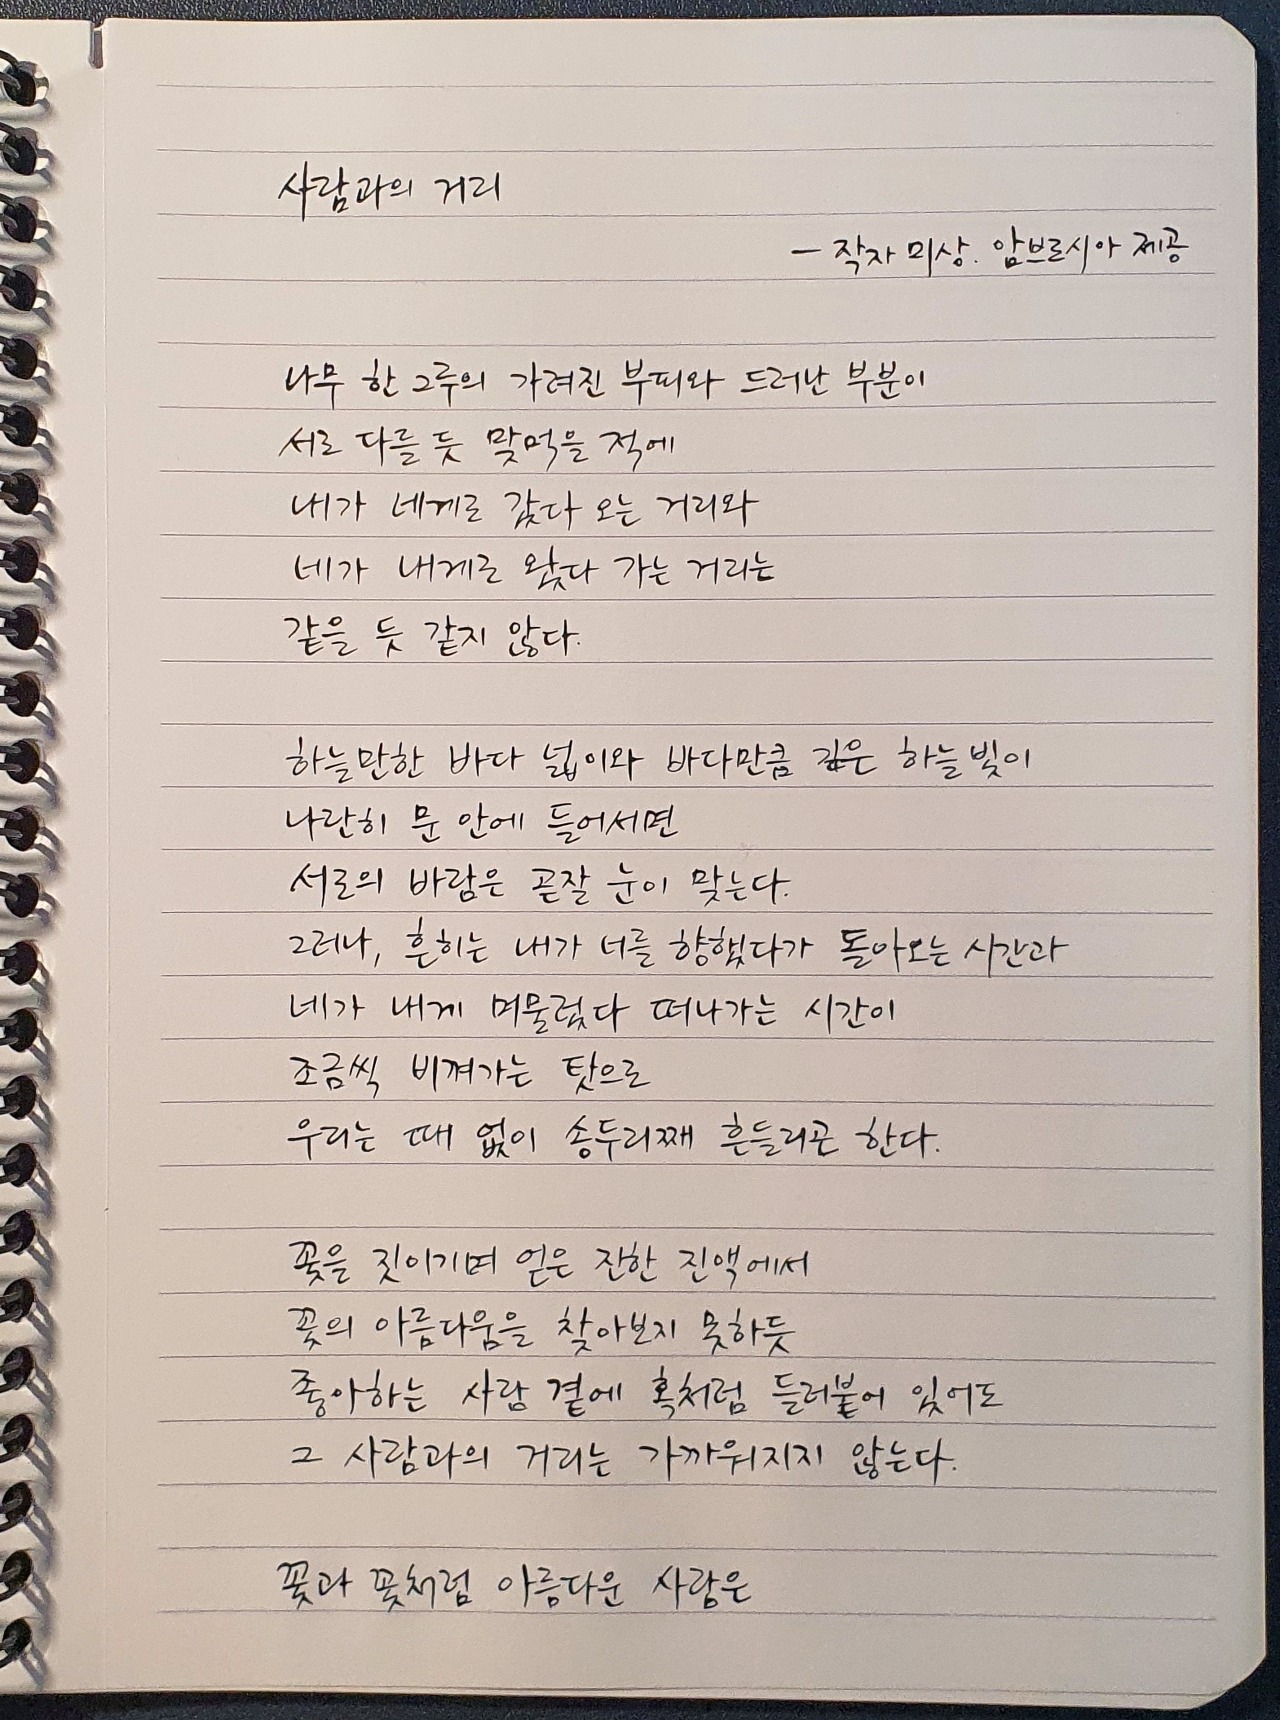 사람과의 거리
- 작자 미상. 암브로시아 제공
나무 한 그루의 가려진 부피와 드러난 부분이
서로 다를 듯 맞먹을 적에
내가 네게로 갔다 오는 거리와
네가 내게로 왔다 가는 거리는
같을 듯 같지 않다.
하늘만한 바다 넓이와 바다만큼 깊은 하늘빛이
나란히 문 안에 들어서면
서로의 바람은 곧잘 눈이 맞는다.
그러나, 흔히는 내가 너를 향했다가 돌아오는 시간과
네가 내게 머물렀다 떠나가는 시간이
조금씩 비껴가는 탓으로
우리는 때 없이 송두리째 흔들리곤 한다.
꽃을 짓이기며 얻은 진한 진액에서
꽃의 아름다움을 찾아보지 못하듯
좋아하는 사람 곁에 혹처럼 들러붙어 있어도
그 사람과의 거리는 가까워지지 않는다.
꽃과 꽃처럼 아름다운 사람은